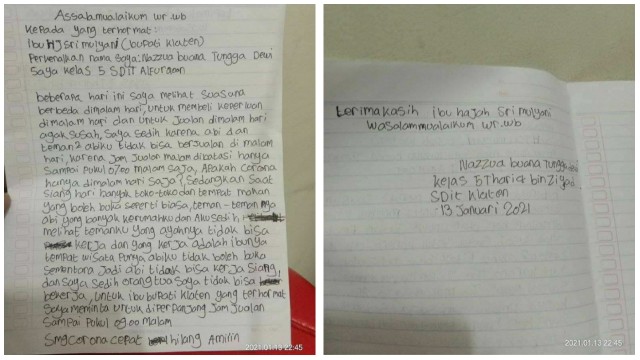 Assalamualaikum wr.wb
Kepada yang terhormat:
Ibu HJ Sri mulyani (bupati klaten)
Perkenalkan nama saya: Nazzua buana Tungga Dewi
Saya kelas 5 SDIT Alfuraan
beberapa hari ini saya melihat suasana
berbeda dimalam hari, untuk membeli keperluan
dimalam hari dan untuk Jualan dimalam hari
agak susah, saya sedih karena abi dan
teman2 abiku tidak bisa berjualan di malam
hari, karena Jam Jualan malam dibatasi hanya
sampai pukul 07.00 malam saja, Apakah corona
hanya dimalam hari saja?, sedangkan saat
siang hari banyak toko-toko dan tempat makan
yang boleh buka seperti biasa, teman-teman nya
abi yang banyak kerumahku dan Aku sedih
melihat temanku yang ayahnya tidak bisa
kerja dan yang kerja adalah ibunya
tempat wisata punya abiku tidak boleh buka
sementara Jadi abi tidak bisa kerja siang,
dan saya sedih orang tua saya tidak bisa
bekerja, untuk ibu bupati klaten yang terhormat
saya meminta untuk diperpanjang Jam Jualan
sampai pukul 09.00 malam
Smg corona cepat hilang Amiiin
2021.01.13 22:45
terimakasih ibu hajah sri mulyani
wasalammualaikum wr.wb
Nazzua buana Tungga
kelas 5 Thariq bin Ziyad
SDit klaten
13 Januari 2021
2021.01.13 22:45